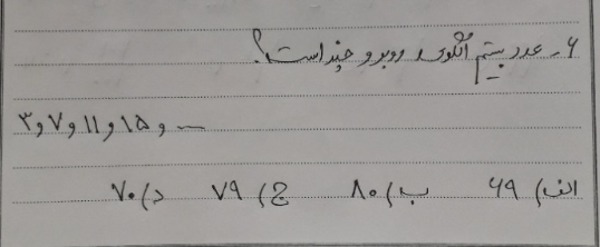 ۶ـ عدد بیستم الگوی روبرو چند است؟
۳ و ۷ و ۱۱ و ۱۵ و ...
الف) ۶۹ ب) ۸۰ ج) ۷۹ د) ۷۰